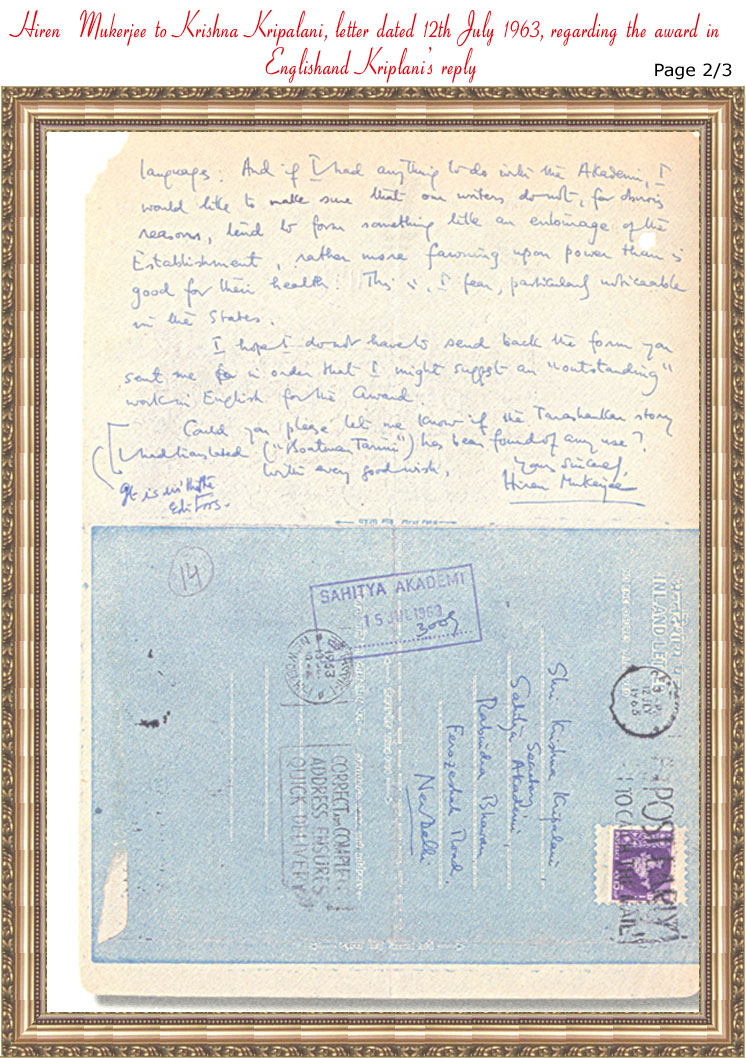 Hiren Mukerjee to Krishna Kripalani, letter dated 12th July 1963, regarding the award in
Englishand Kriplani's reply
Page 2/3
language. And if I had anything to do with the Akademi, I
would like to make sure that our writers do not, for obvious
reasons, tend to form something like an entourage of the
Establishment, rather more fawning upon power than is
good for their health. This is, I fear, particularly noticeable
in the States.
I hope I do not have to send back the form you
sent me in order that I might suggest an "outstanding"
work in English for the Award.
Could you please let me know if the Tarashankar story
I had translated ("Boatman Tarini") has been found of any use?
With every good wish,
Yours sincerely,
Hiren Mukerjee
It is with the
Editors.
14
SAHITYA AKADEMI
15 JUL 1963
3005
Shri Krishna Kripalani,
Secretary,
Sahitya Akademi,
Rabindra Bhavan
Ferozeshah Road,
New Delhi
INLAND LETTER
1963
CORRECT AND COMPLETE
ADDRESS ENSURES
QUICK DELIVERY
POST EARLY